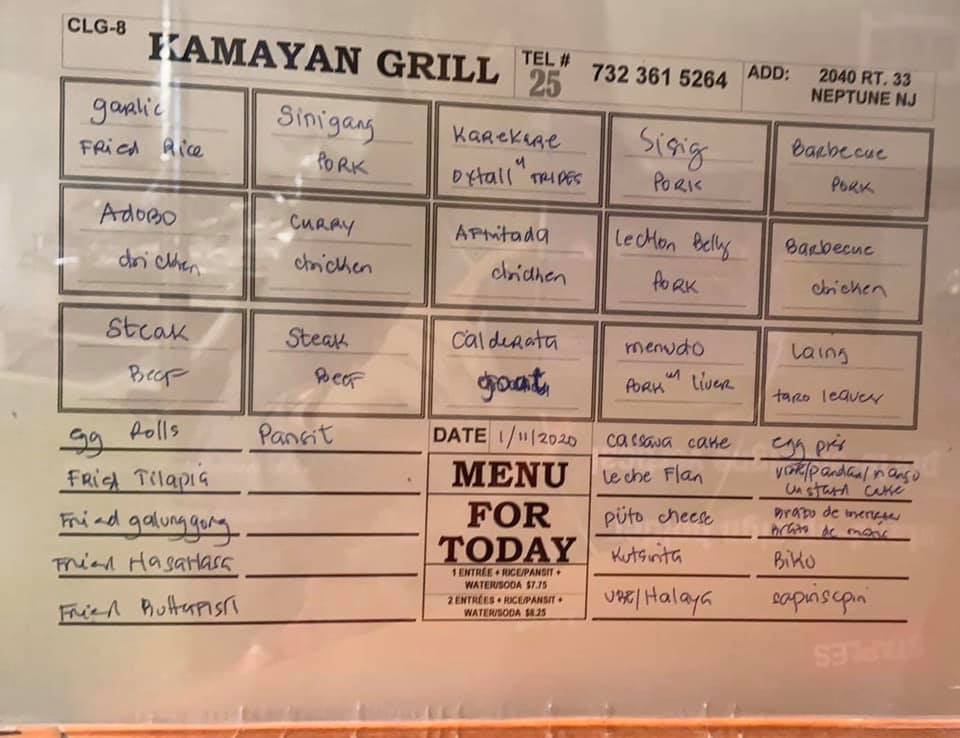 CLG-8
KAMAYAN GRILL
TEL #
25
732 361 5264
ADD:
2040 RT. 33
NEPTUNE NJ
garlic
FRied Rice
Sinigang
PORK
KAREKARE
Oxtail w/ TRIPES
Sisig
PORK
Barbecue
PORK
ADOBO
chicken
CURRY
chicken
Afritada
chicken
Lechon Belly
PORK
Barbecue
chicken
Steak
Beef
Steak
Beef
Caldereta
goat
menudo
PORK w/ liver
Laing
taro leaves
egg Rolls
Pansit
Fried Tilapia
Fried galunggong
Fried HasaHasa
Fried Butterfish
DATE 1/11/2020
MENU
FOR
TODAY
1 ENTRÉE + RICE/PANSIT +
WATER/SODA $7.75
2 ENTRÉES + RICE/PANSIT +
WATER/SODA $8.25
cassava cake
egg pie
Leche Flan
UBE/pandan/mango
custard cake
puto cheese
Brazo de mercedes
Brazo de
Kutsinta
Biko
UBE/Halaya
sapinsapin
STAPLES